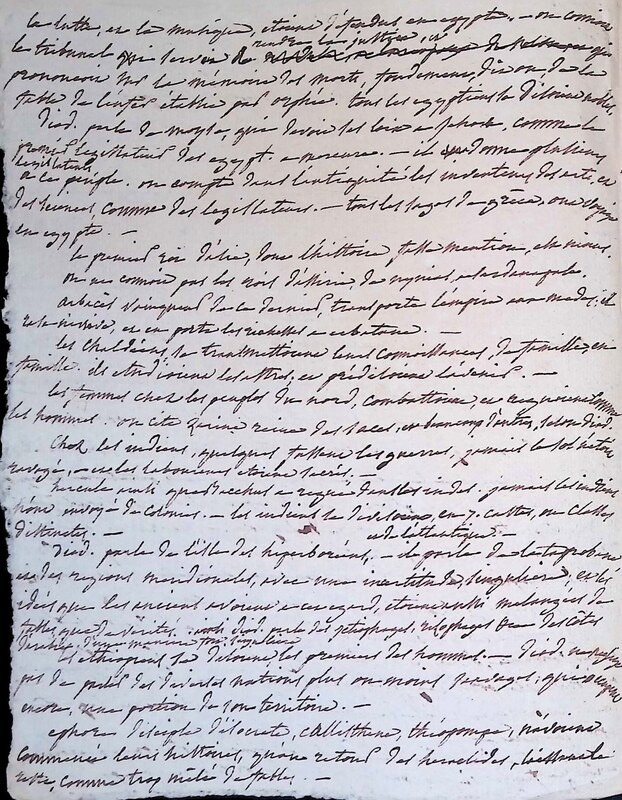 la lutte, et la musique, etoient défendus en egypte. — on connoit
le tribunal qui servoit a rendre la justice, et
prononcoit sur la mémoire des morts, fondement, dit on, de la
fable de l'enfer établie par orphée. tous les egyptiens se disoient nobles,
Diod. parle de moyse, qui devoit ses loix a jehova, comme le
premier legislateur des egypt. a mercure. — il donne plusieurs
legislateurs
a ce peuple. on compte dans l'antiquité les inventeurs des arts, et
des sciences, comme des legislateurs. — tous les sages de grèce, ont voyagé
en egypte. —
le premier roi d'asie, dont l'histoire, fasse mention, est ninus.
on ne connoit pas les rois d'assirie de ninias, a sardanapale.
arbaces vainqueur de ce dernier, transporte l'empire aux medes; il
rase ninive, et en porte les richesses a ecbatane. —
les Chaldéens, se transmettoient leurs connoissances, de famille, en
famille. ils etudioient les astres, et prédisoient l'avenir. —
les femmes chez les peuples du nord, combattoient, et regnoient comme
les hommes. on cite zarine reine des saces, et beaucoup d'autres, selon diod.
Chez les indiens, quelques fussent les guerres, jamais le sol n'etoit
ravagé, — et les laboureurs etoient sacrés. —
hercule ainsi que bacchus a regné dans les indes. jamais les indiens
n'ont envoyé de colonies. — les indiens se divisoient, en 7. castes, ou classes
distinctes. —
et de l'atlantique —
Diod. parle de l'isle des hiperboréens, — il parle de la taprobane
et des regions meridionales, avec une incertitude, singuliere; et les
idées que les anciens avoient a cet egard, etoient aussi melangées de
fables, que de vérités. — aussi diod. parle des ictiophages, rizophages &a des côtes
d'arabie, d'une maniere fort singuliere
Les ethiopiens se disoient les premiers des hommes. — Diod.
pas de parler des diverses nations plus ou moins sauvages; qui occupent
encore, une portion de son territoire. —
ephore disciple d'isocrate, callisthene, théopompe, n'avoient
commencé leurs histoires, qu'au retour des heraclides,
reste, comme trop mêlé de fables. —